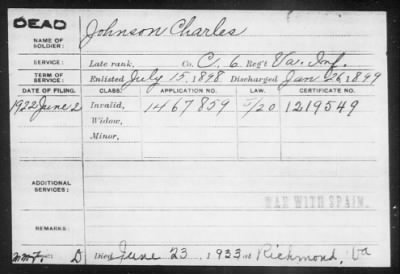 DEAD
Johnson Charles
NAME OF SOLDIER:
SERVICE: Late rank, Co. C, 6 Reg't Va. Inf.
TERM OF SERVICE: Enlisted July 15, 1898 Discharged Jan 26, 1899
DATE OF FILING. CLASS. APPLICATION NO. LAW. CERTIFICATE NO.
1922 June 2 Invalid, 1467859 5/20 1219549
Widow,
Minor,
ADDITIONAL SERVICES:
WAR WITH SPAIN.
REMARKS:
D Died June 23, 1933 at Richmond, Va